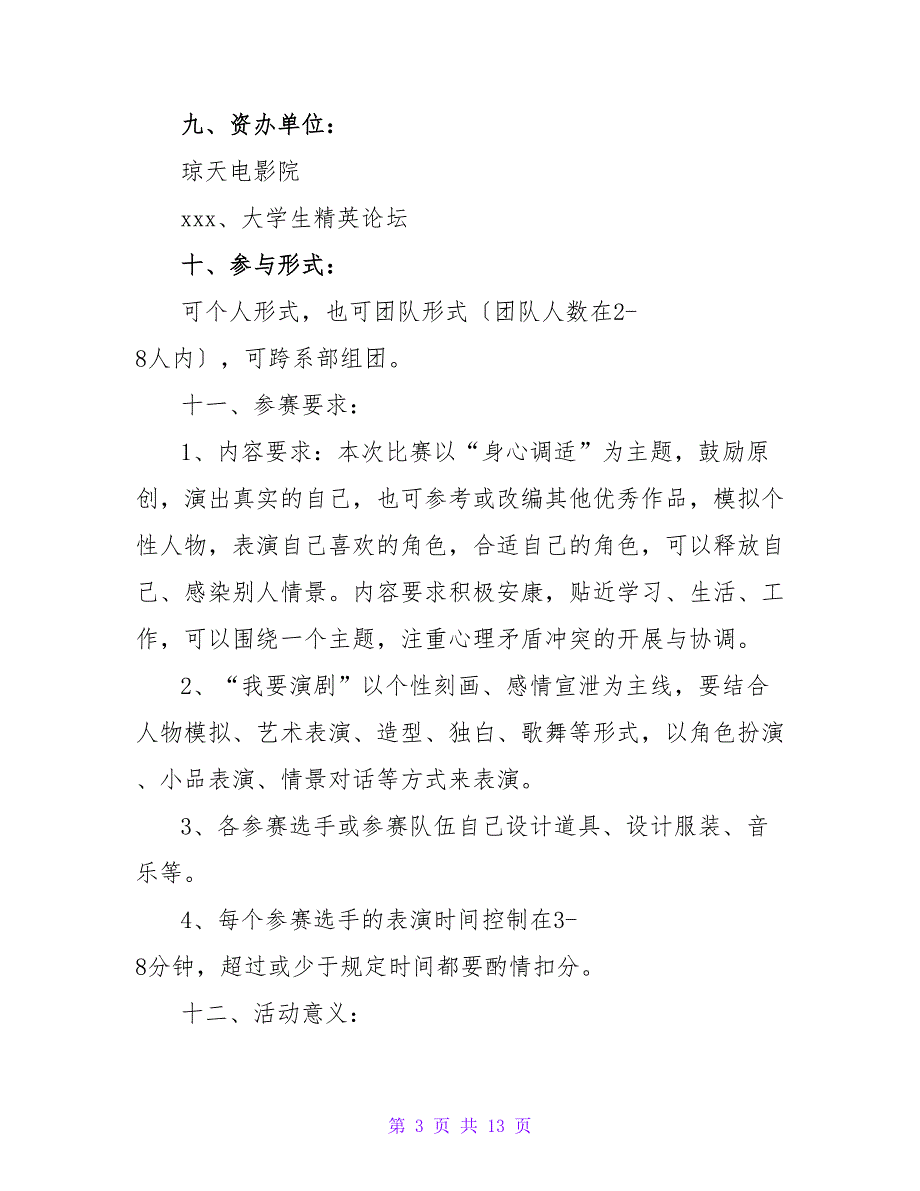 九、资办单位：
琼天电影院
xxx、大学生精英论坛
十、参与形式：
可个人形式，也可团队形式〔团队人数在2-
8人内〕，可跨系部组团。
十一、参赛要求：
1、内容要求：本次比赛以“身心调适”为主题，鼓励原
创，演出真实的自己，也可参考或改编其他优秀作品，模拟个
性人物，表演自己喜欢的角色，合适自己的角色，可以释放自
己、感染别人情景。内容要求积极安康，贴近学习、生活、工
作，可以围绕一个主题，注重心理矛盾冲突的开展与协调。
2、“我要演剧”以个性刻画、感情宣泄为主线，要结合
人物模拟、艺术表演、造型、独白、歌舞等形式，以角色扮演
、小品表演、情景对话等方式来表演。
3、各参赛选手或参赛队伍自己设计道具、设计服装、音
乐等。
4、每个参赛选手的表演时间控制在3-
8分钟，超过或少于规定时间都要酌情扣分。
十二、活动意义：
第 3 页 共 13 页